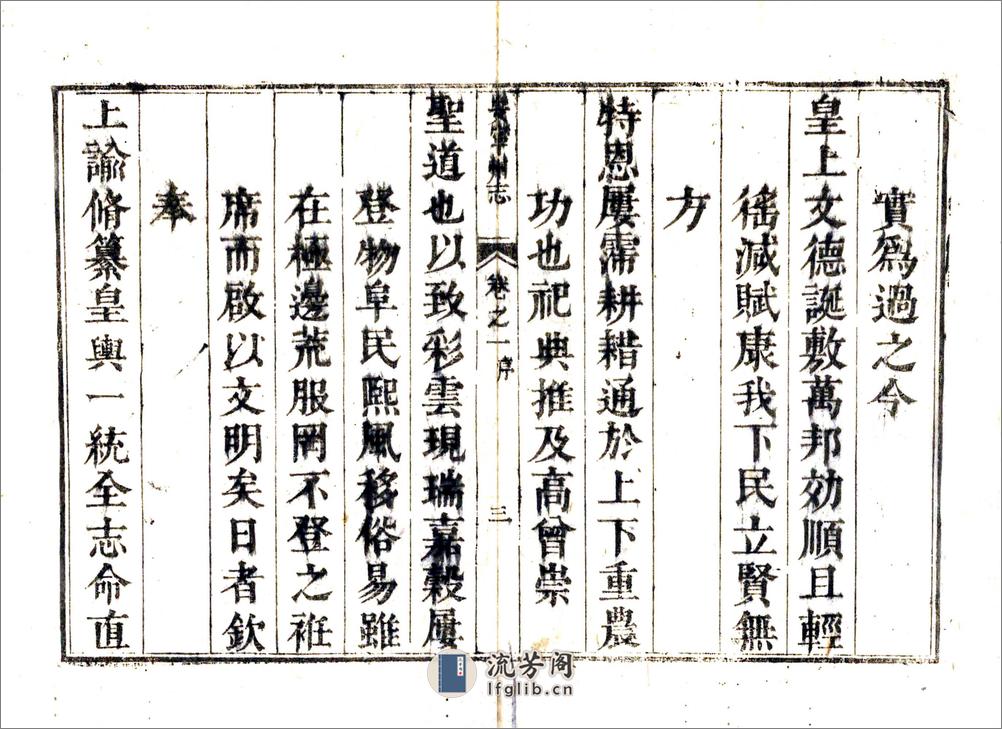 實為過之今
皇上文德誕敷萬邦効順且輕
徭減賦康我下民立賢無
方
特恩屢霈耕耤通於上下重農
功也祀典推及高曾崇
安寧州志 卷之一 序 三
聖道也以致彩雲現瑞嘉穀屢
登物阜民熙風移俗易雖
在極邊荒服罔不登之袵
席而啟以文明矣日者欽
奉
上諭脩纂皇輿一統全志命直
流芳阁
lfglib.cn